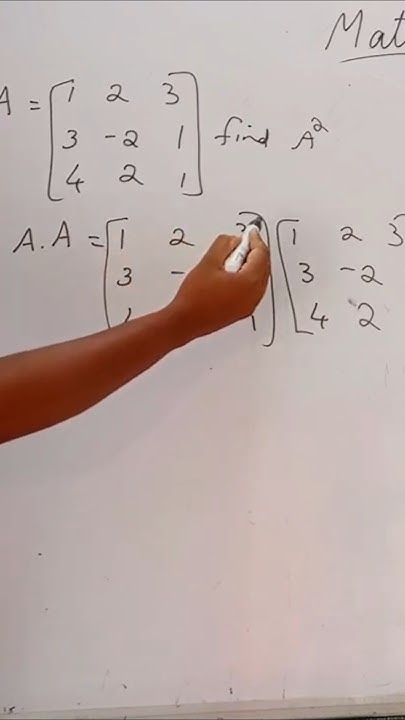 Mat
A = [1 2 3
3 -2 1
4 2 1] find A²
A.A = [1 2 3] [1 2 3
3 - 3 -2
1 4 2